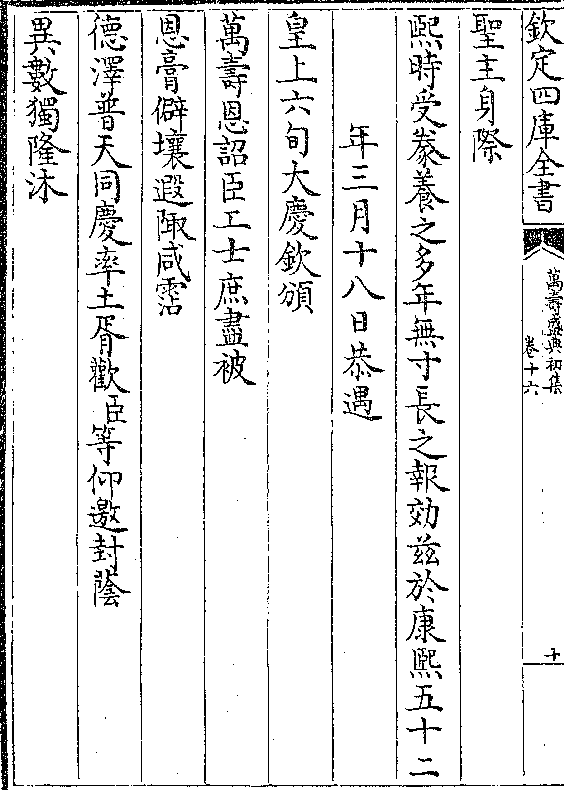 欽定四庫全書
萬壽盛典初集
卷十六
十
聖主身際
熙時受豢養之多年無寸長之報効兹於康熙五十二
年三月十八日恭遇
皇上六旬大慶欽頒
萬壽恩詔臣工士庶盡被
恩膏僻壤遐陬咸霑
德澤普天同慶率土胥歡臣等仰邀封蔭
異數獨隆沐